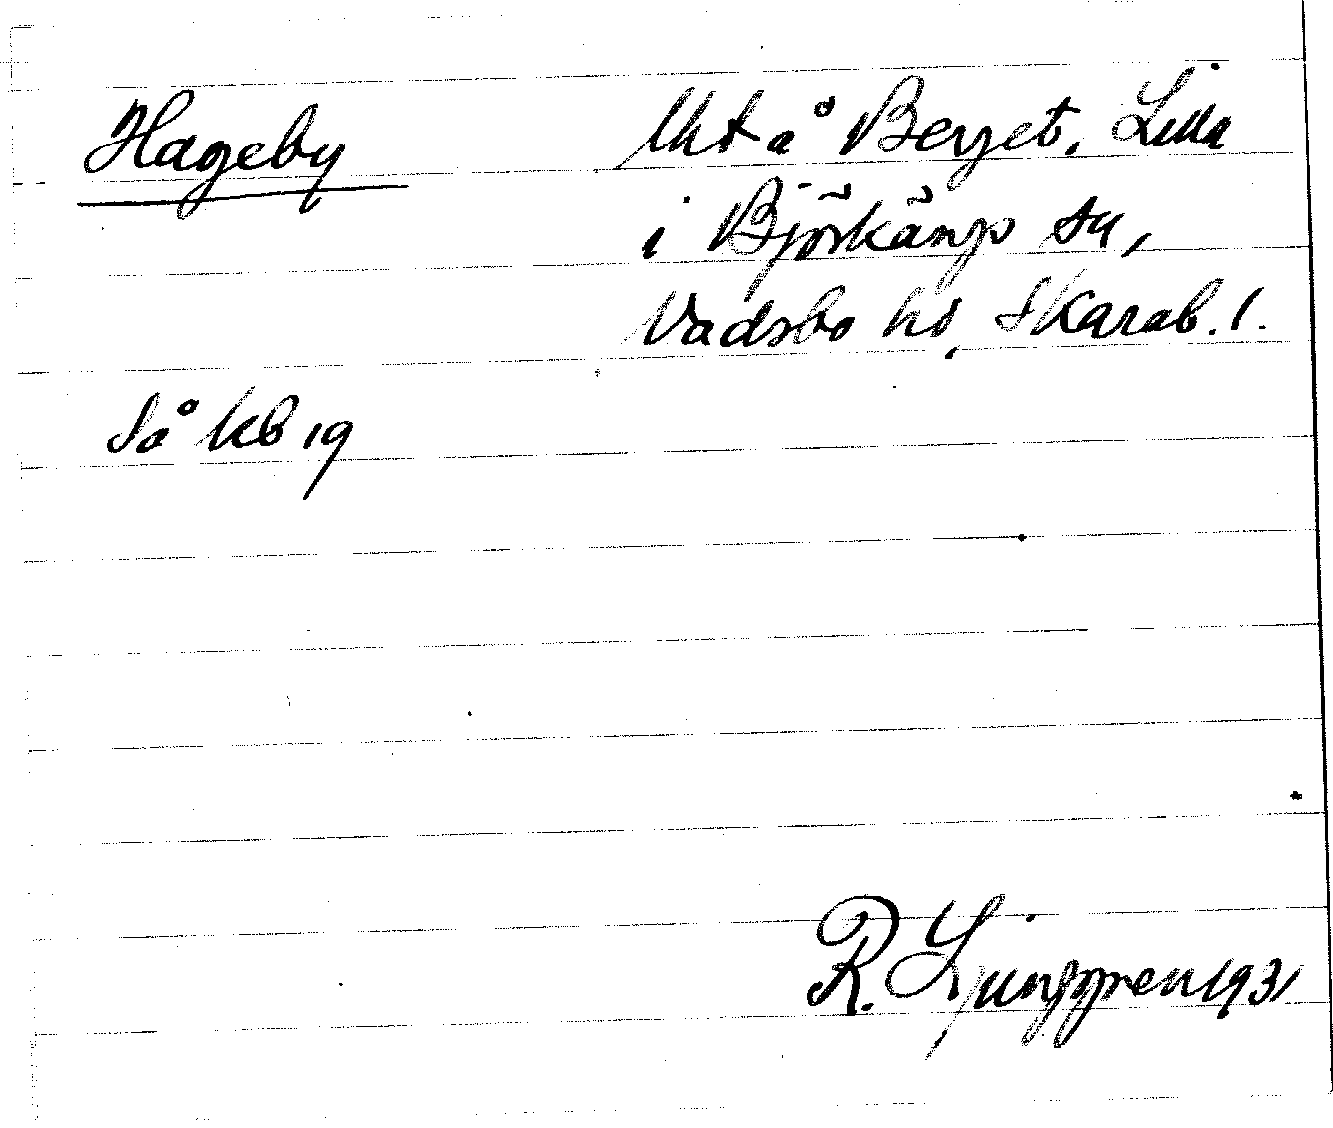 Hageby
Utt å Berget, Lilla
i Björkängs sn,
Vadsbo hd, Skarab. l.
Så kb 19
R. Ljunggren 1931